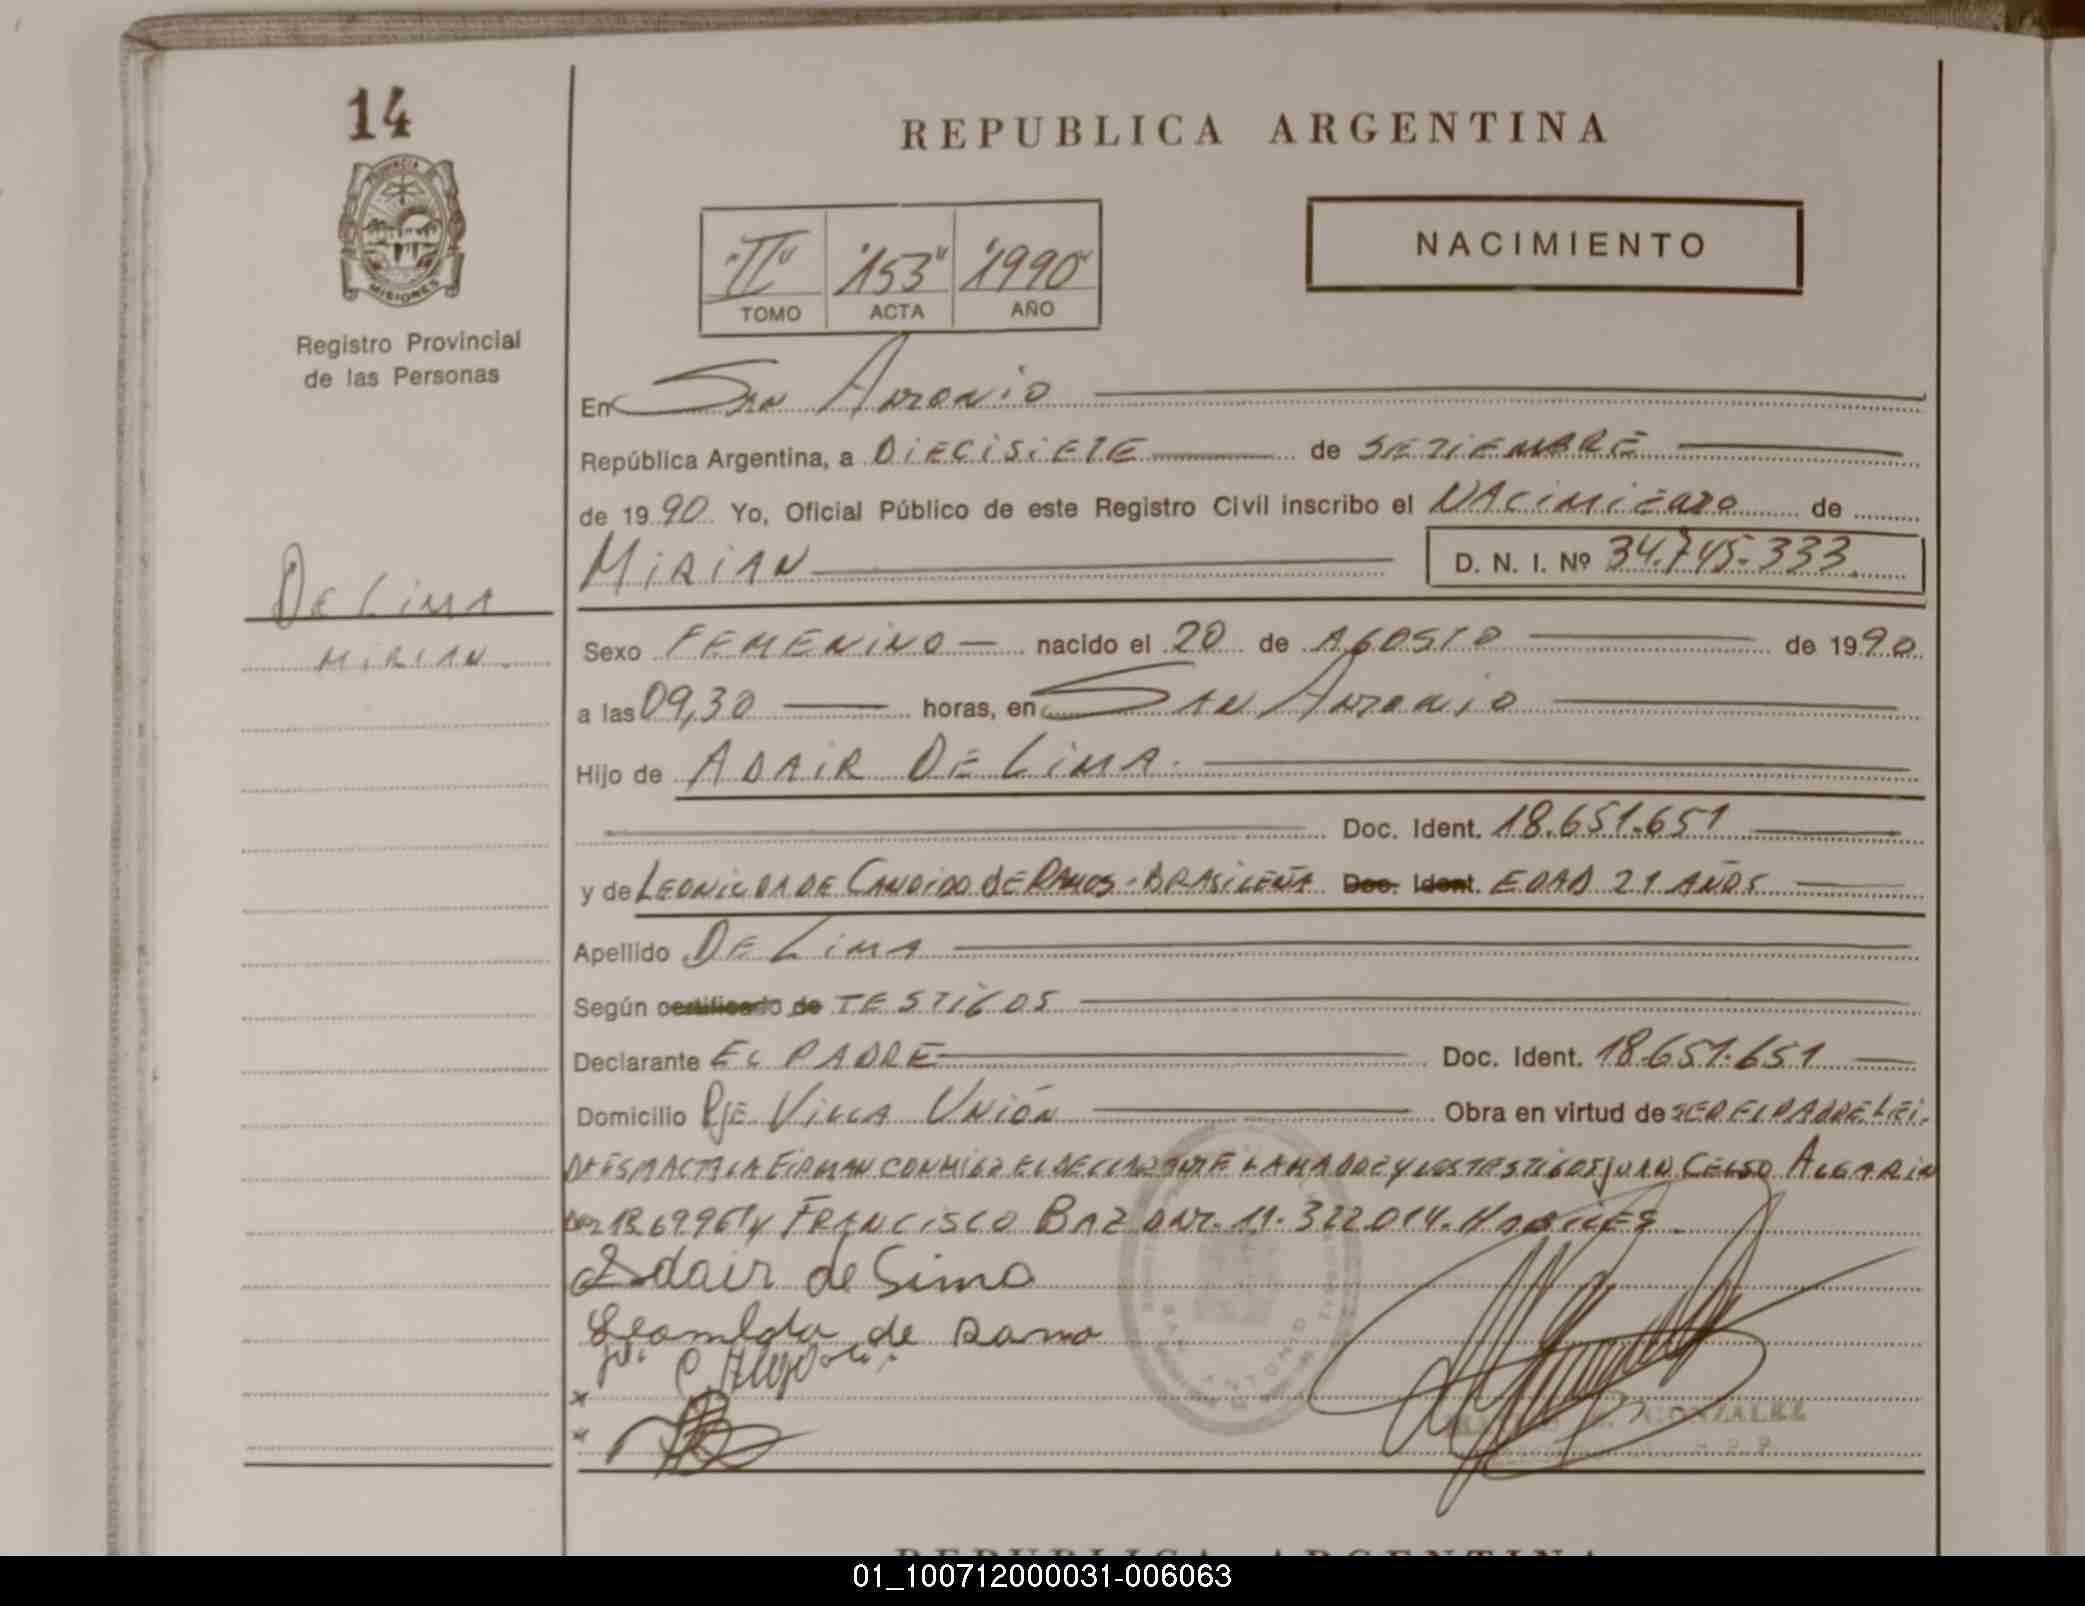 14
PROVINCIA DE
MISIONES
Registro Provincial
de las Personas
REPUBLICA ARGENTINA
"II" "153" "1990"
TOMO ACTA AÑO
NACIMIENTO
En San Antonio
República Argentina, a DiECiSiETE de SETiEMBRE
de 1990 Yo, Oficial Público de este Registro Civil inscribo el NACiMiENTO de
MiRiAN D. N. I. Nº 34.745.333
DE LiMA
MiRiAN.
Sexo FEMENiNO nacido el 20 de AGOSTO de 1990
a las 09,30 horas, en SAN ANTONiO
Hijo de ADAiR DE LiMA.
Doc. Ident. 18.651.651
y de LEONiLDA DE CANDiDO DE RAMOS - BRASiLEÑA Doc. Ident. EDAD 21 AÑOS
Apellido DE LiMA
Según certificado de TESTiGOS
Declarante EL PADRE Doc. Ident. 18.651.651
Domicilio PJE ViLLA UNiÓN Obra en virtud de SER EL PADRE. LEi-
DA ESTA ACTA LA FiRMAN CONMiGO EL DECLARANTE LA MADRE Y LOS TESTiGOS JUAN CELSO ALGARiN
y FRANCiSCO BAZ DNI. 11.322.014. HABiLES
Adair de Lima
Leonilda de Ramo
SAN ANTONIO
GONZALEZ
REPUBLICA ARGENTINA
01_100712000031-006063